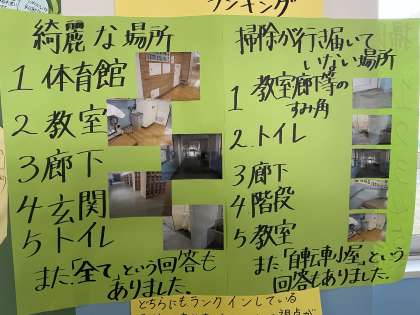 ランキング
綺麗な場所
1 体育館
2 教室
3 廊下
4 玄関
5 トイレ
また、「全て」という回答も
ありました。
掃除が行き届いて
いない場所
1 教室廊下等の
すみ角
2 トイレ
3 廊下
4 階段
5 教室
また「自転車小屋」という
回答もありました。
どちらにもランクインしている